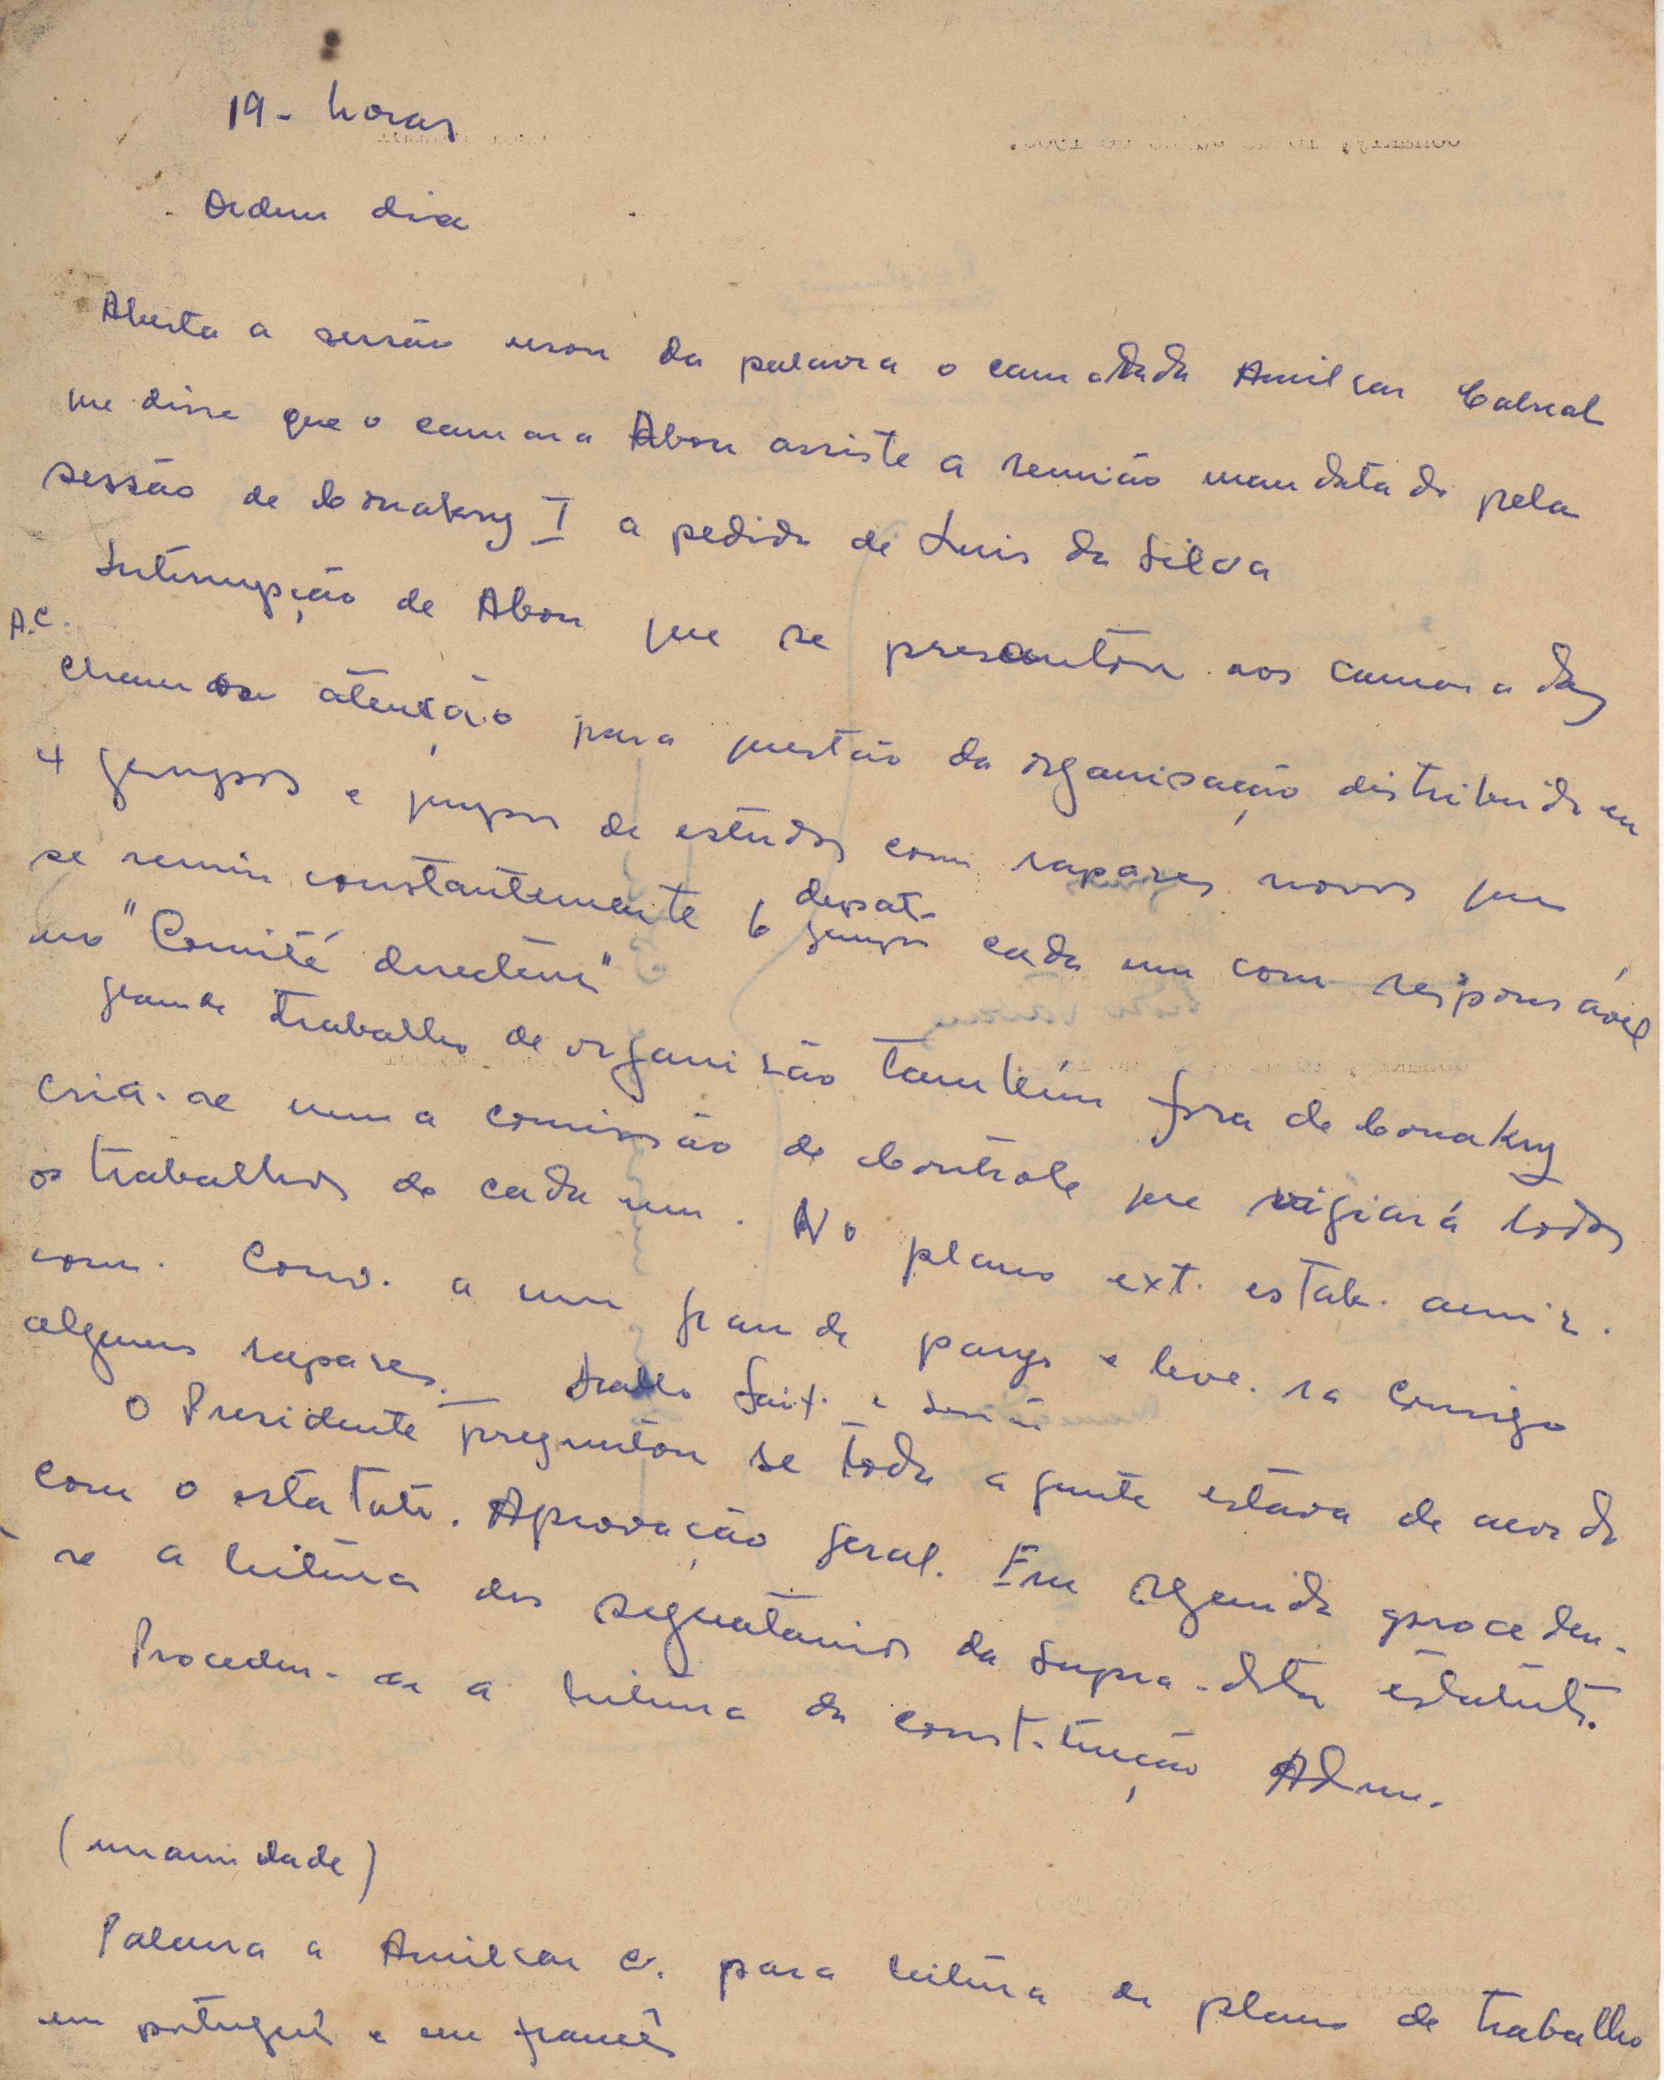 19- horas
Ordem dia
Aberta a sessão usou da palavra o camarada Amilcar Cabral
que disse que o camara Abou assiste a reunião mandatado pela
sessão de Conakry I a pedido de Luis da Silva
Interrupção de Abou que se presentou aos camaradas
A.C.
chamou atenção para questão da organisação distribuido em
4 grupos e grupos de estudos com rapazes novos que
se reunin constantemente 6 grupos cada um com responsável
depat-
no "Comité directeur"
grande trabalho de organisão também fora de Conakry
cria-se uma comissão de Controle que vigiará todos
os trabalhos de cada um. No plano ext. estab. amiz.
com. Conv. a um grande pays e leve. ra comigo
alguns rapazes.
O Presidente preguntou se toda a gente estava de acordo
com o estatuto. Aprovação geral. Em seguida procedeu-
se a leitura dos seguatarios da supra-dita estatuto.
Procedeu-se a leitura da constituição Adm.
(unanimidade)
Palavra a Amilcar C. para leitura de plano de trabalho
em português e em francês